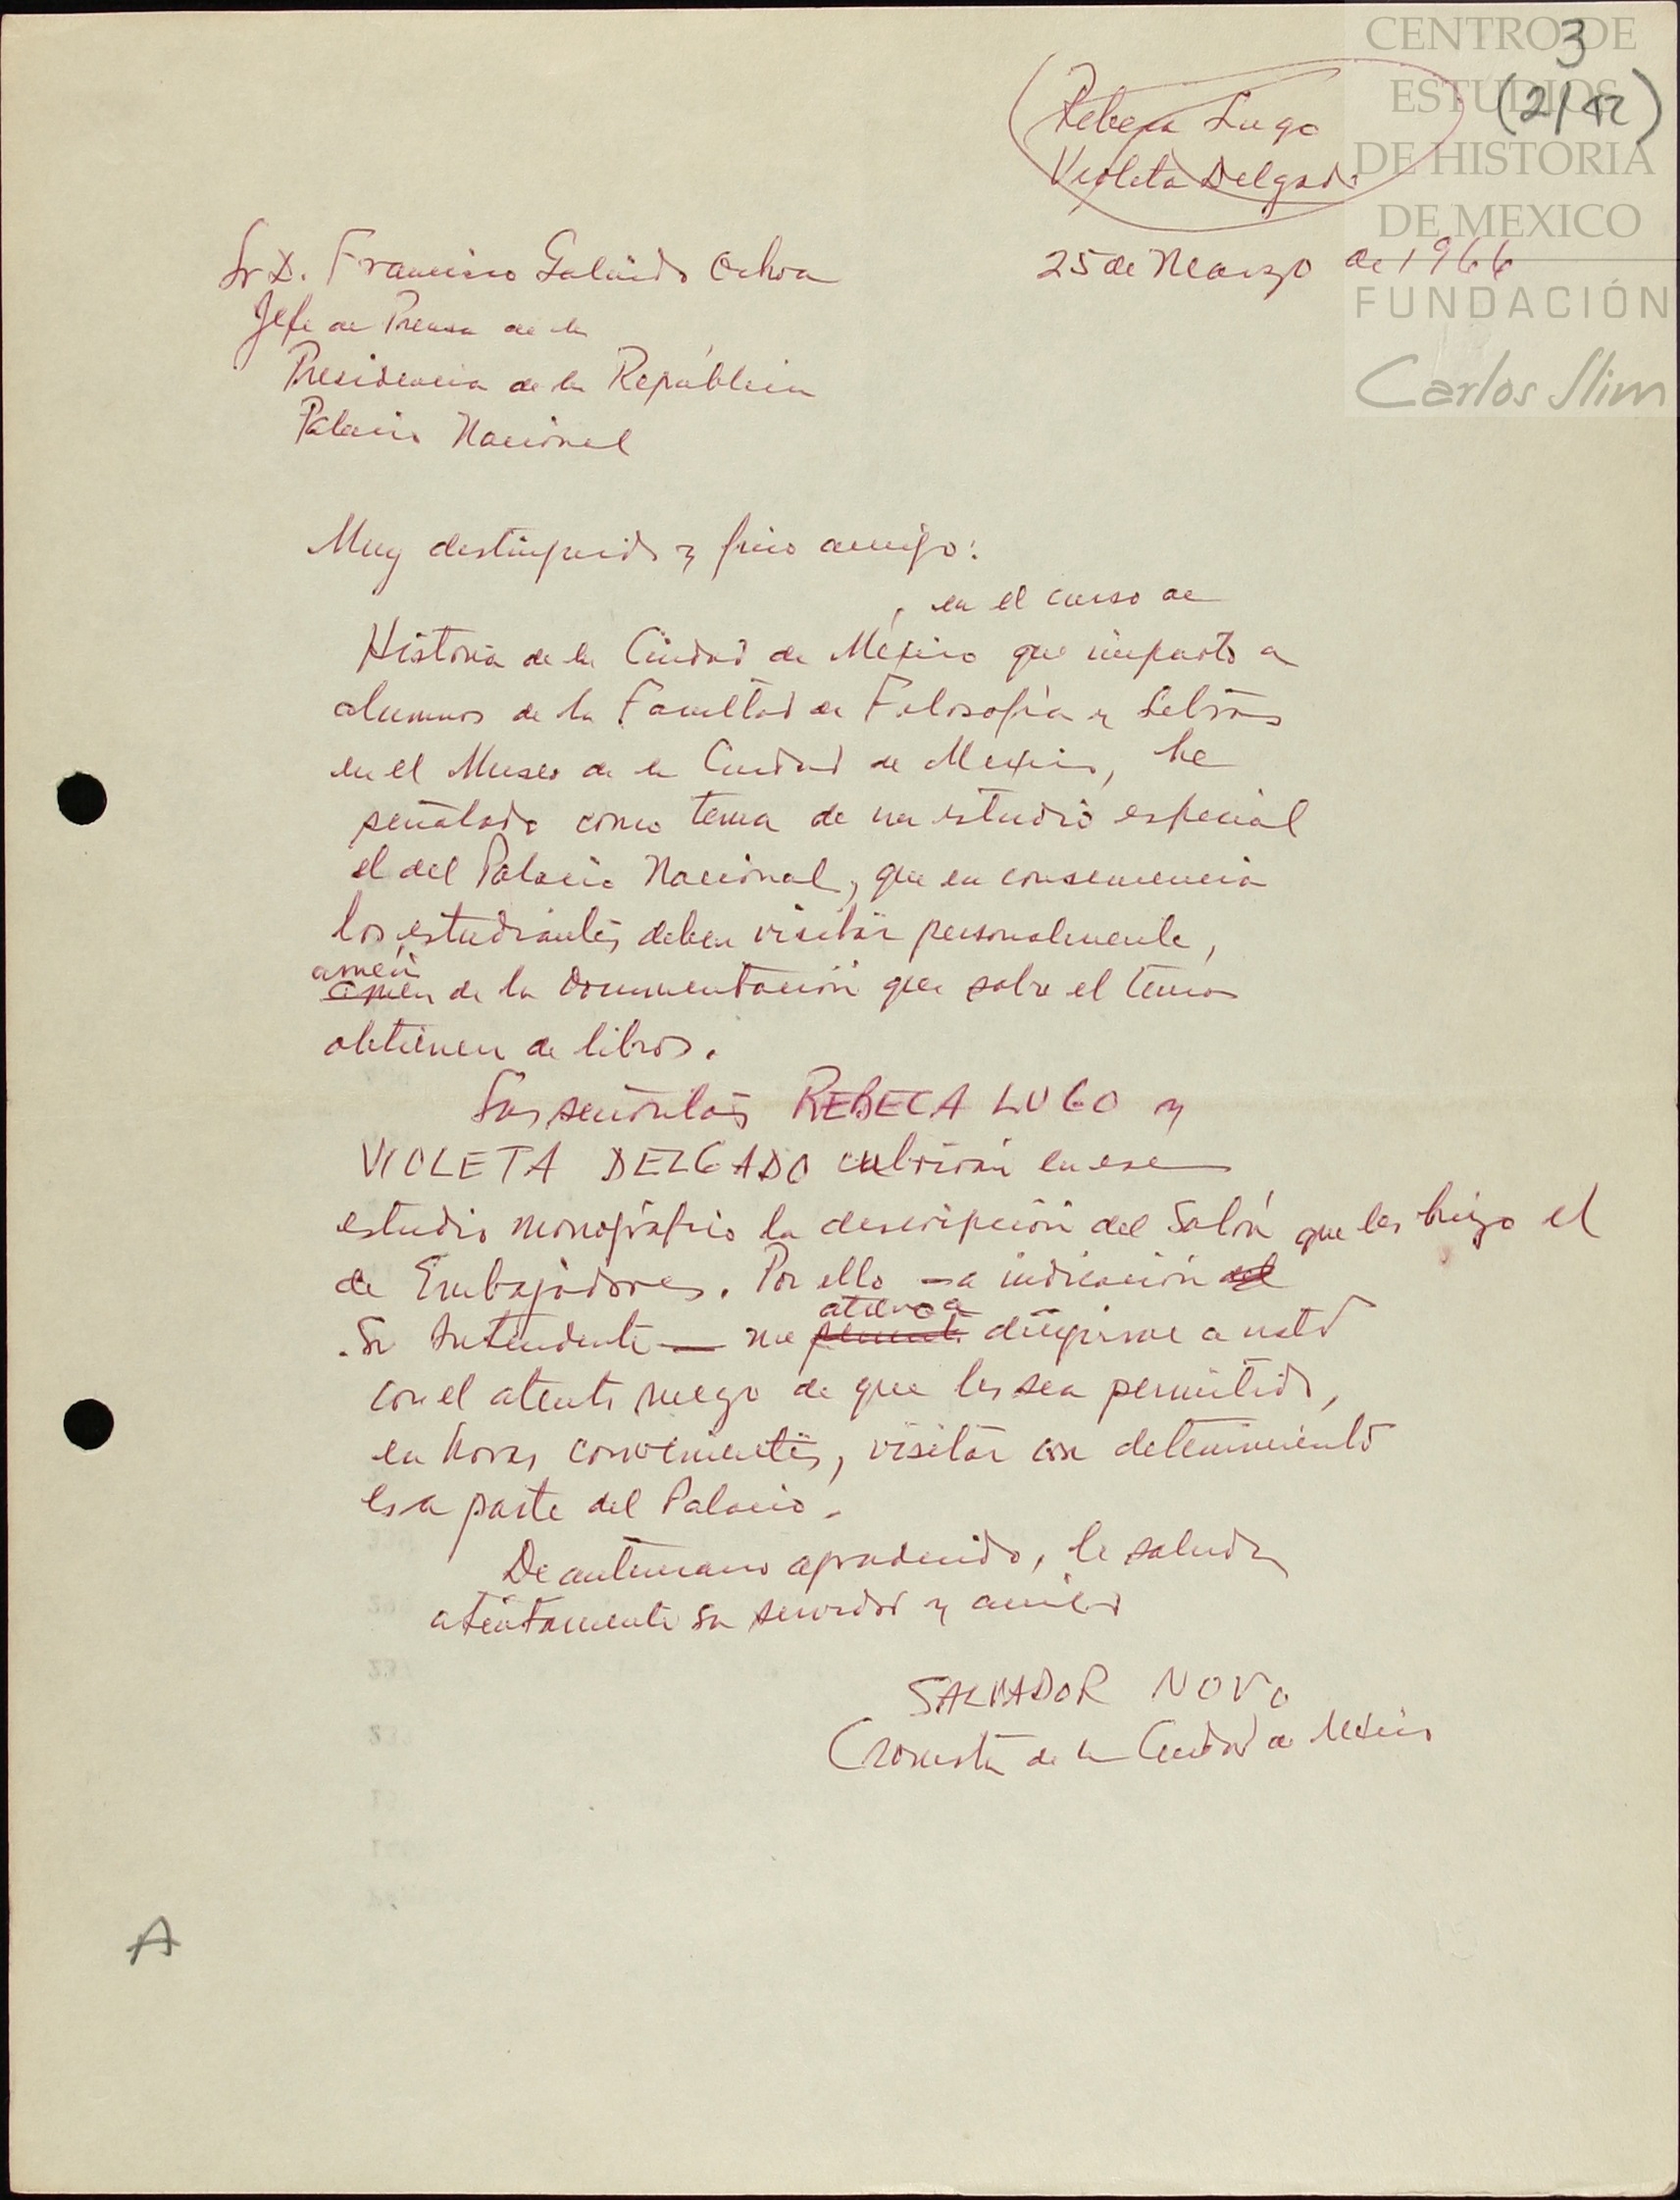 CENTRO DE
ESTUDIOS
DE HISTORIA
DE MEXICO
FUNDACIÓN
Carlos Slim
3
(2/42)
Rebeca Lugo
Violeta Delgado
25 de Marzo de 1966
Sr D. Francisco Galindo Ochoa
Jefe de Prensa de la
Presidencia de la República
Palacio Nacional
Muy distinguido y fino amigo:
, en el curso de
Historia de la Ciudad de México que imparto a
alumnos de la Facultad de Filosofía y Letras
en el Museo de la Ciudad de México, he
señalado como tema de un estudio especial
el del Palacio Nacional, que en consecuencia
los estudiantes deben visitar personalmente,
amén
amen de la documentación que sobre el tema
obtienen de libros.
Las señoritas REBECA LUGO y
VIOLETA DELGADO cubrirán en ese
estudio monográfico la descripción del Salón que les hizo el
de Embajadores. Por ello — a indicación del
atrevo a
Sr Intendente — me permito dirigirme a usted
con el atento ruego de que les sea permitido,
en horas convenientes, visitar con detenimiento
esa parte del Palacio.
De antemano agradecido, le saluda
atentamente su servidor y amigo
SALVADOR NOVO
Cronista de la Ciudad de México
A